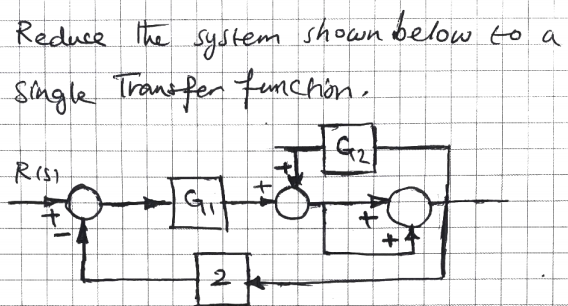 Reduce the system shown below to a
single Transfer function.
G2
+
R(s)
+
G1
+
+
-
+
2